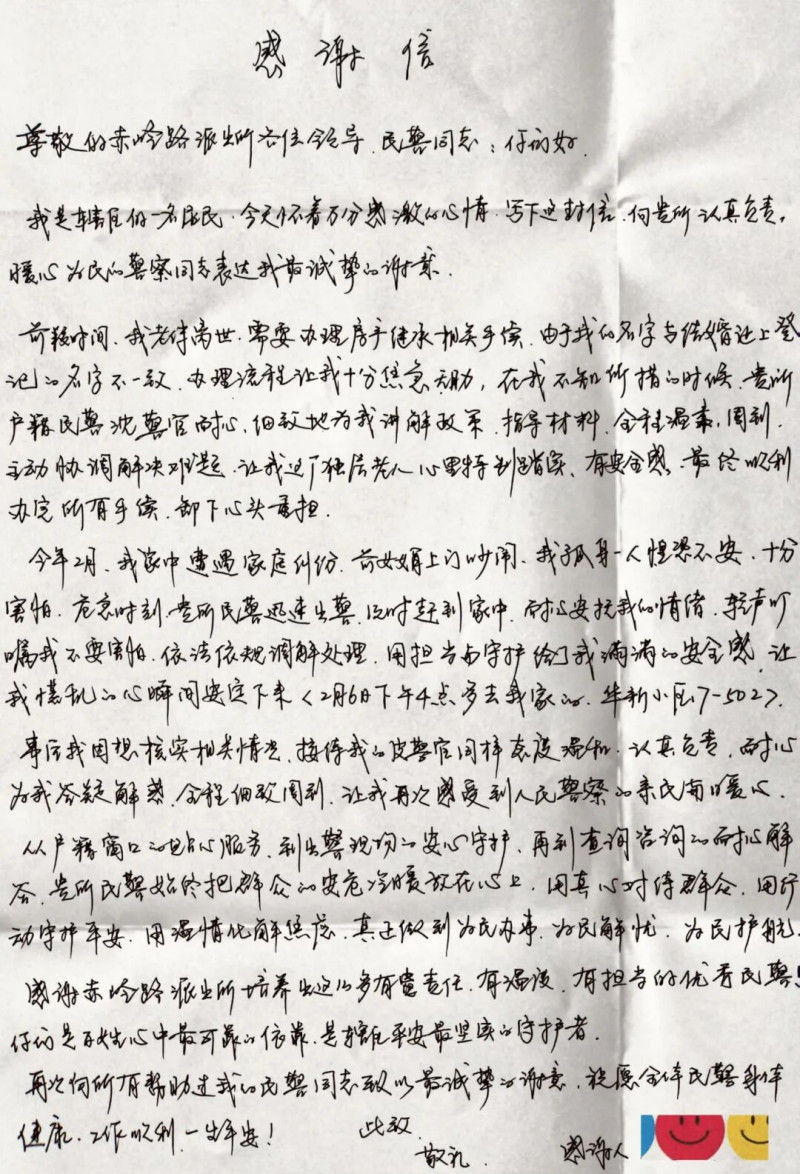 感谢信
尊敬的赤岭路派出所各位领导、民警同志：你们好、
我是辖区的一名居民、今天怀着万分感激的心情、写下这封信、向贵所认真负责、
暖心为民的警察同志表达我最诚挚的谢意、
前段时间、我老伴离世、需要办理房产继承相关手续、由于我的名字与结婚证上登
记的名字不一致、办理流程让我十分焦急无助，在我不知所措的时候、贵所
户籍民警沈警官耐心、细致地为我讲解政策、指导材料、全程温柔，周到、
主动协调解决难题、让我这个独居老人心里特别踏实、有安全感、最终顺利
办完所有手续、卸下心头重担.
今年2月、我家中遭遇家庭纠纷、前女婿上门吵闹、我孤身一人惶恐不安、十分
害怕、危急时刻、贵所民警迅速出警、及时赶到家中、耐心安抚我的情绪、轻声叮
嘱我不要害怕、依法依规调解处理、用担当与守护给了我满满的安全感、让
我慌乱的心瞬间安定下来〈2月6日下午4点多去我家的、华新小区7-502〉.
事后我因想核实相关情况、接待我的皮警官同样态度温和、认真负责、耐心
为我答疑解惑、全程细致周到、让我再次感受到人民警察的亲民与暖心、
从户籍窗口的贴心服务、到出警现场的安心守护、再到查询咨询的耐心解
答、贵所民警始终把群众的安危冷暖放在心上、用真心对待群众、用行
动守护平安、用温情化解焦虑、真正做到为民办事、为民解忧、为民护航、
感谢赤岭路派出所培养出这么多有责任、有温度、有担当的优秀民警！
你们是百姓心中最可靠的依靠、是辖区平安最坚实的守护者.
再次向所有帮助过我的民警同志致以最诚挚的谢意、祝愿全体民警身体
健康、工作顺利、一生平安！
此致
敬礼、
感谢人